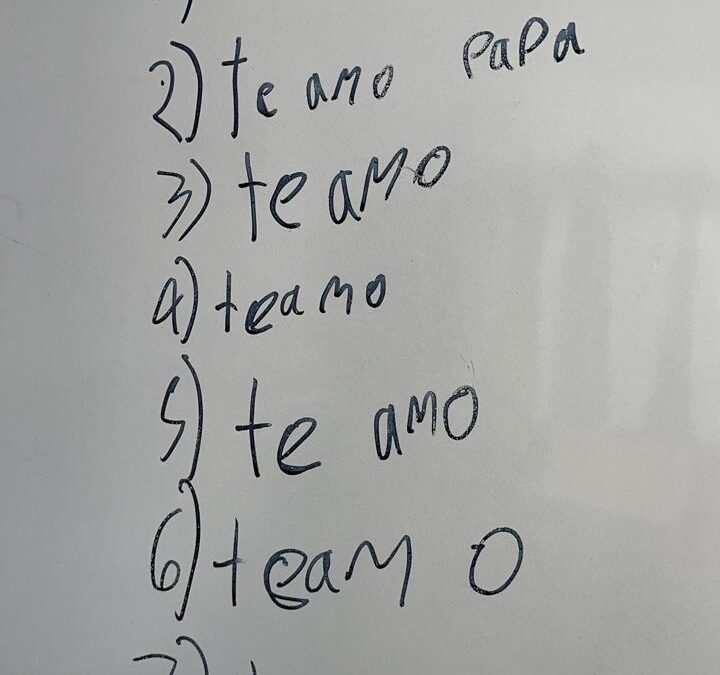 2) te amo papa
3) te amo
4) teamo
5) te amo
6) team o